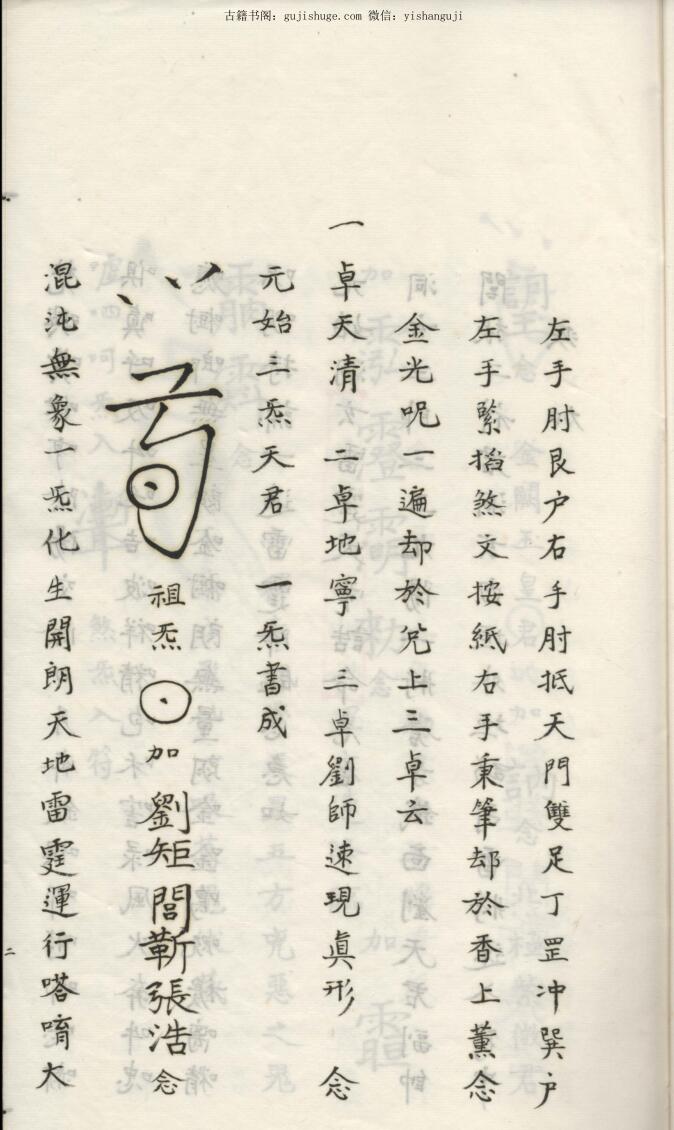 古籍书阁：gujishuge.com 微信：yishanguji
左手肘艮户右手肘抵天門雙足丁罡冲巽户
左手緊掐煞文按紙右手秉筆却於香上薰念
金光呪一遍却於炁上三卓云
一卓天清 二卓地寧 三卓劉師速現眞形 念
元始三炁天君 一炁書成
祖炁 加 劉矩閻靳張浩 念
混沌無象一炁化生開朗天地雷霆運行嗒唷大
二